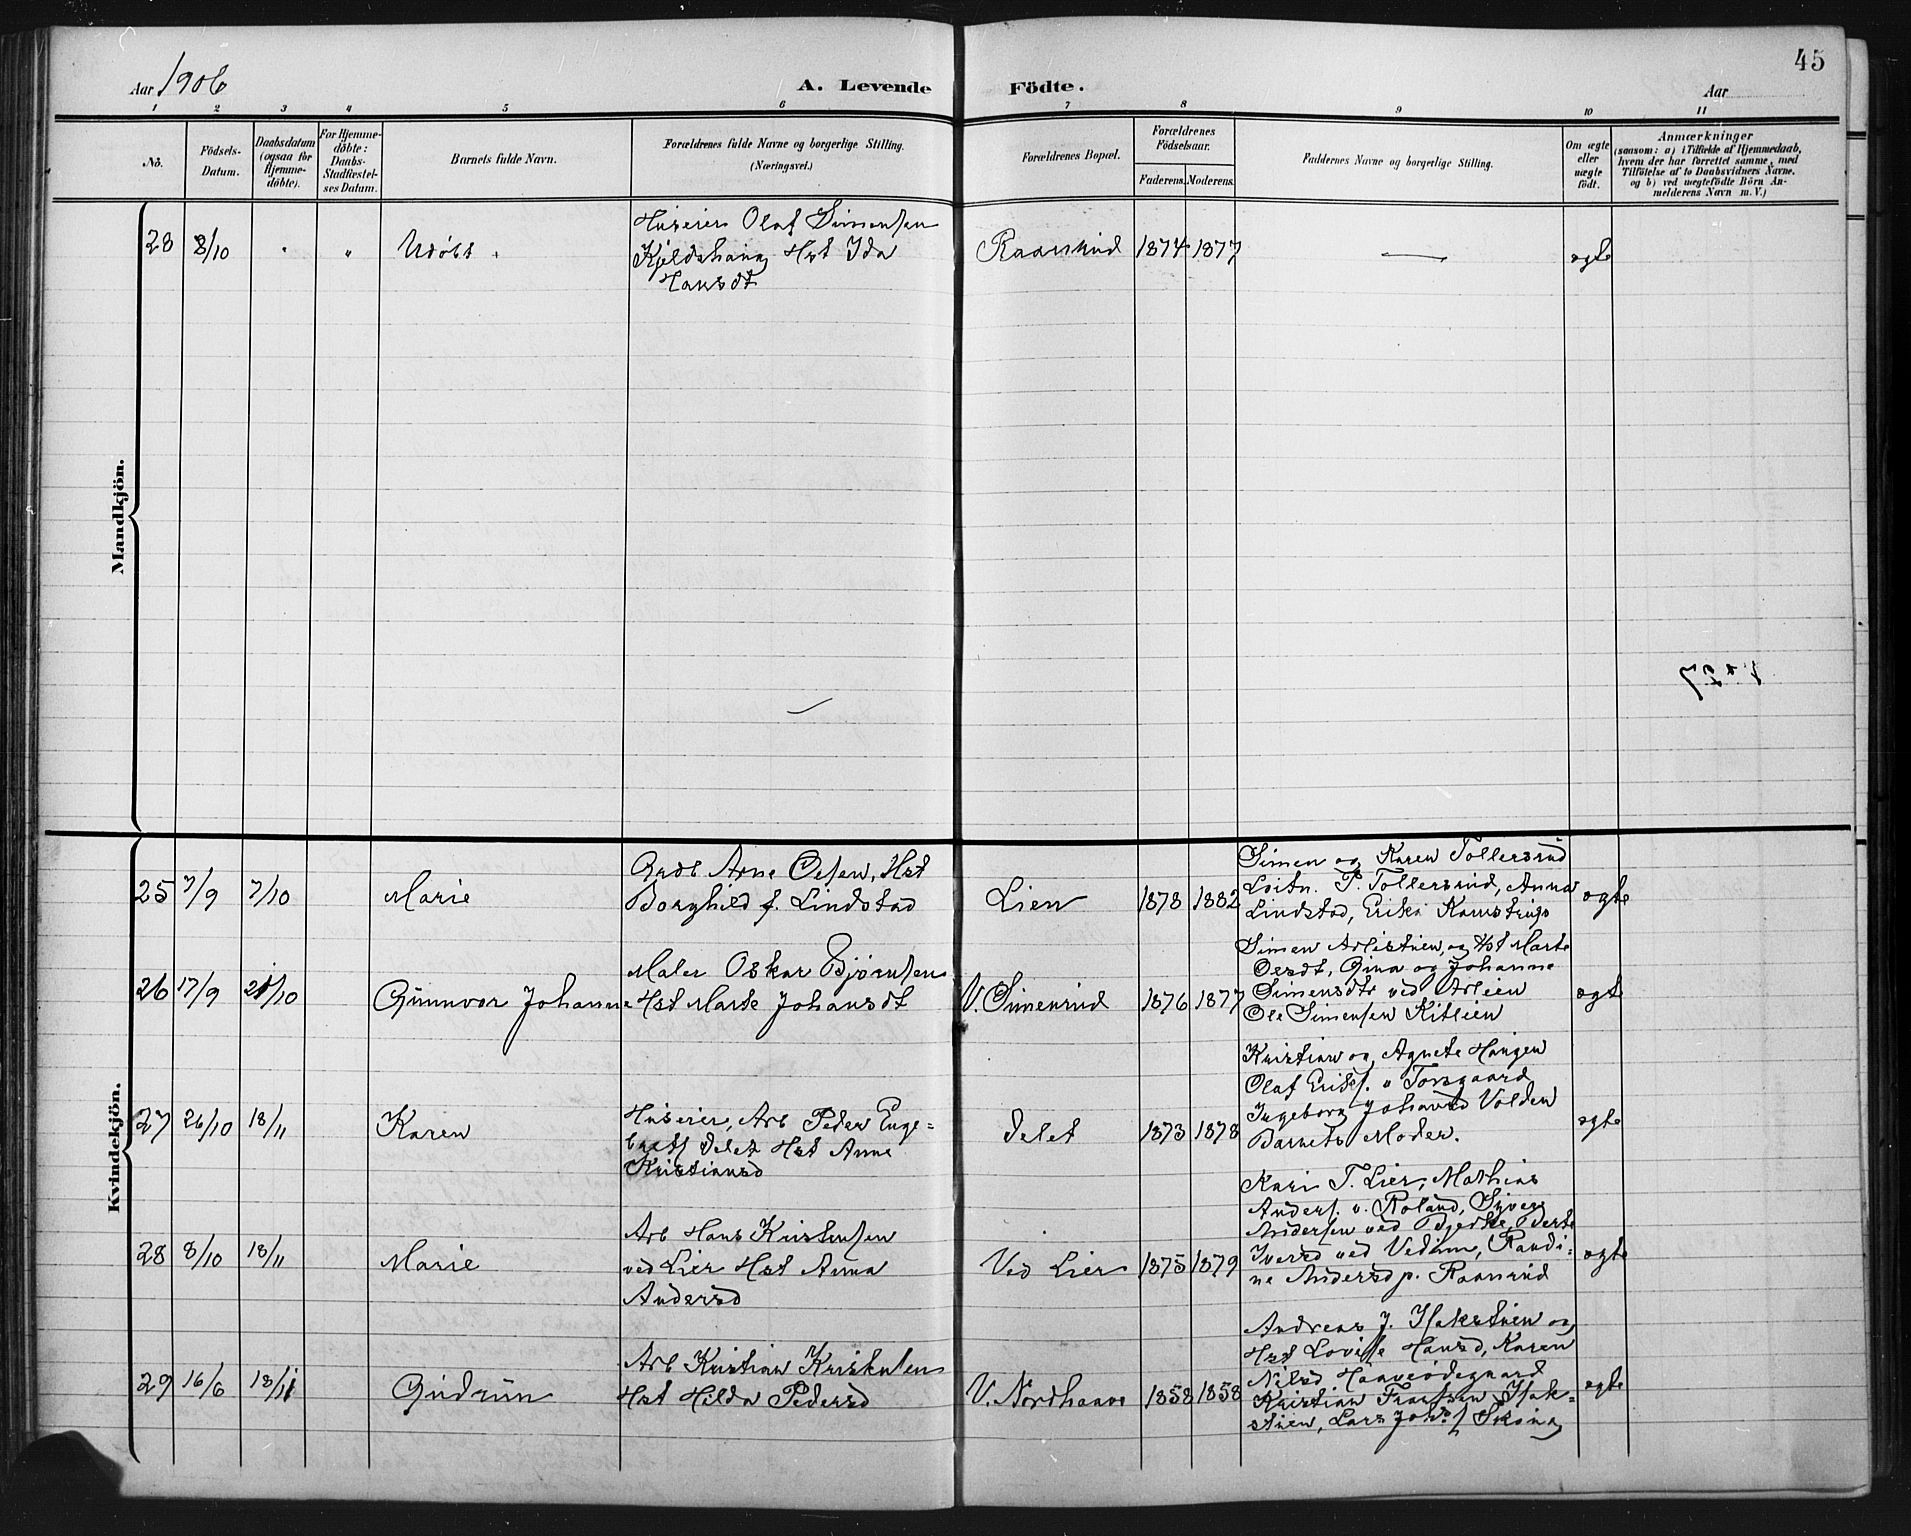 45
Aar 1906
A. Levende Födte.
Aar
1 2 3 4 5 6 7 8 9 10 11
No.
Födsels-Datum.
Daabsdatum (ogsaa for Hjemme-döbte).
For Hjemme-döbte: Daabs-Stadfæstel-ses Datum.
Barnets fulde Navn.
Forældrenes fulde Navne og borgerlige Stilling. (Næringsvei.)
Forældrenes Bopæl.
Forældrenes Födselsaar.
Faderens. Moderens.
Faddernes Navne og borgerlige Stilling.
Om ægte eller uægte födt.
Anmærkninger
(saasom: a) i Tilfælde af Hjemmedaab,
hvem der har forrettet samme, med
Tilföielse af to Daabsvidners Navne.
og b) ved uægtefödte Börn An-
melderens Navn m. V.)
Mandkjön.
28 8/10 " " Udøbt.
Huseier Olaf Simensen
Kjeldshaug Hst Ida
Hansdt
Raasrud 1874 1877 — ægte
Kvindekjön.
25 7/9 7/10 Marie
Grdb Arne Olsen, Hst
Borghild f. Lindstad
Lien 1878 1882
Simen og Karen Tollersrud
Løitn. P. Tollersrud, Anna
Lindstad, Erika Kamstrup
ægte
26 17/9 21/10 Gunnvor Johanne
Maler Oskar Bjørnsen
Hst Marte Johansdt
V. Simenrud 1876 1877
Simen Arlistuen, og Hst Marte
Olsdt, Gina og Johanne
Simensdtr ved Arlien
Ole Simensen Kitlien
ægte
27 26/10 18/11 Karen
Huseier, Arb Peder Enge-
bretS Delet Hst Anne
Kristiansd
Delet 1873 1878
Kristian og Agnete Haugen
Olaf Eriks. v Torsgaard
Ingeborg Johansd Volden
Barnets Moder.
ægte
28 8/10 18/11 Marie
Arb Hans Kristensen
ved Lier Hst Anna
Andersd
Ved Lier 1875 1879
Kari T. Lier, Mathias
Anders. v. Roland, Syver
Andersen ved Bjerke, Berte
Iversd ved Vedum, Randi-
ne Andersd p. Raasrud
ægte
29 16/6 18/11 Gudrun
Arb Kristian Kristensen
Hst Hilda Pedersd
V. Nordhaave 1858 1858
Andreas J. Hakstuen og
Hst Lovise Hansd, Karen
Nilsd Haaveødegaard
Kristian Fransen Hak-
stuen, Lars Johs. Skøien
ægte